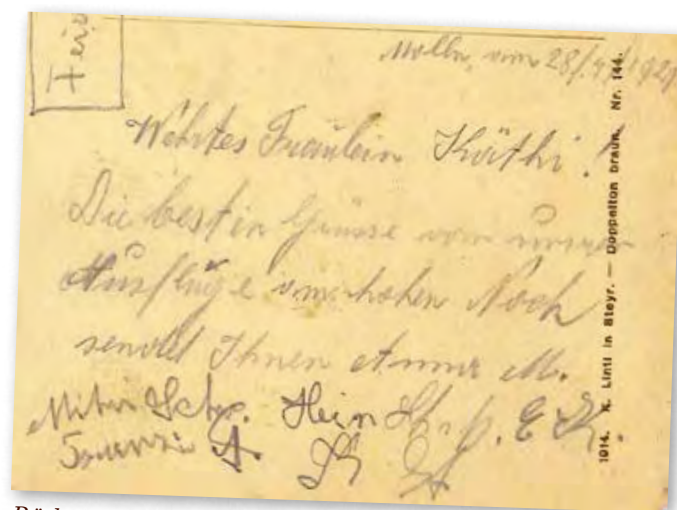 Molln, vom 28/4/192
Wehrtes Fräulein Käthi!
Die besten Grüsse von unser
Ausfluge vom hohen Nock
sendet Ihnen Anna M.
Hein
E. K.
A.
1914. K. Lintl in Steyr. — Doppelton braun. Nr. 144.